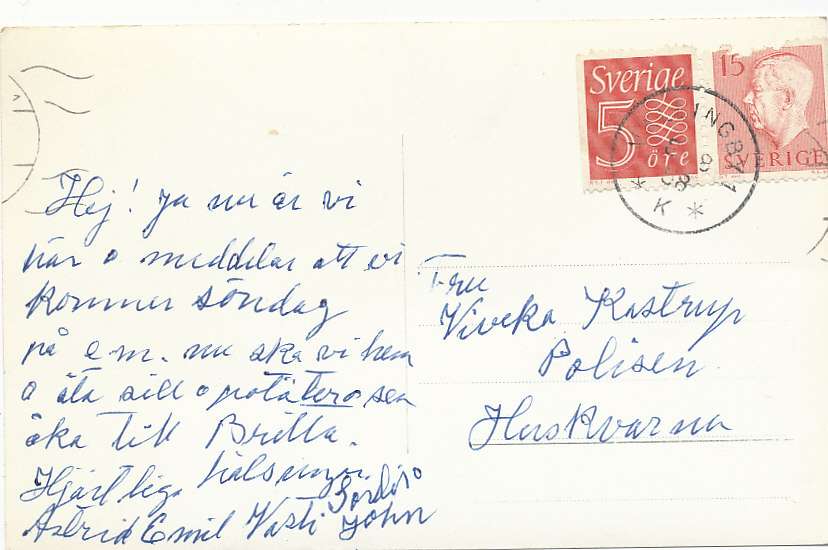 Hej! Ja nu är vi
här o meddelar att vi
kommer söndag
på e m. nu ska vi hem
o äta sill o potäter o sen
åka till Britta.
Hjärtliga hälsningar
Astrid Emil Vasti John
Fru
Viveka Kastrup
Polisen
Huskvarna
Sverige
5
öre
15
SVERIGE
K